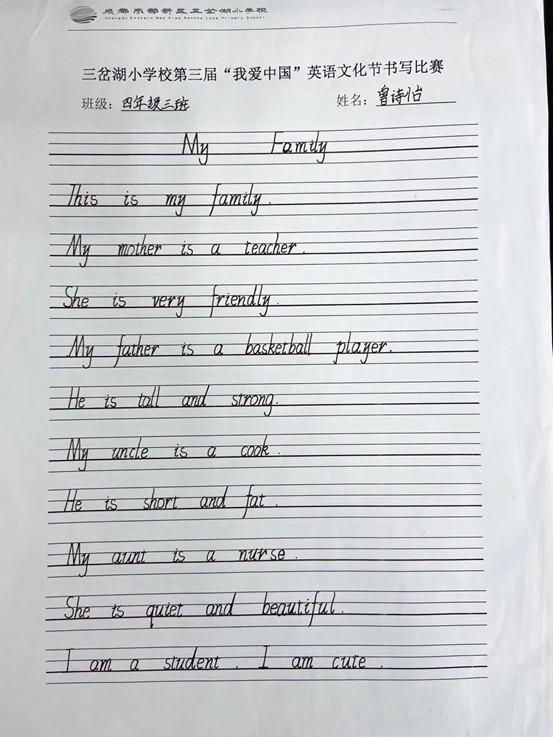 成都东部新区三岔湖小学校
Chengdu Eastern New Area Sancha Lake Primary School
三岔湖小学校第三届“我爱中国”英语文化节书写比赛
班级：四年级三班 姓名：曾诗怡
My Family
This is my family.
My mother is a teacher.
She is very friendly.
My father is a basketball player.
He is tall and strong.
My uncle is a cook.
He is short and fat.
My aunt is a nurse.
She is quiet and beautiful.
I am a student. I am cute.